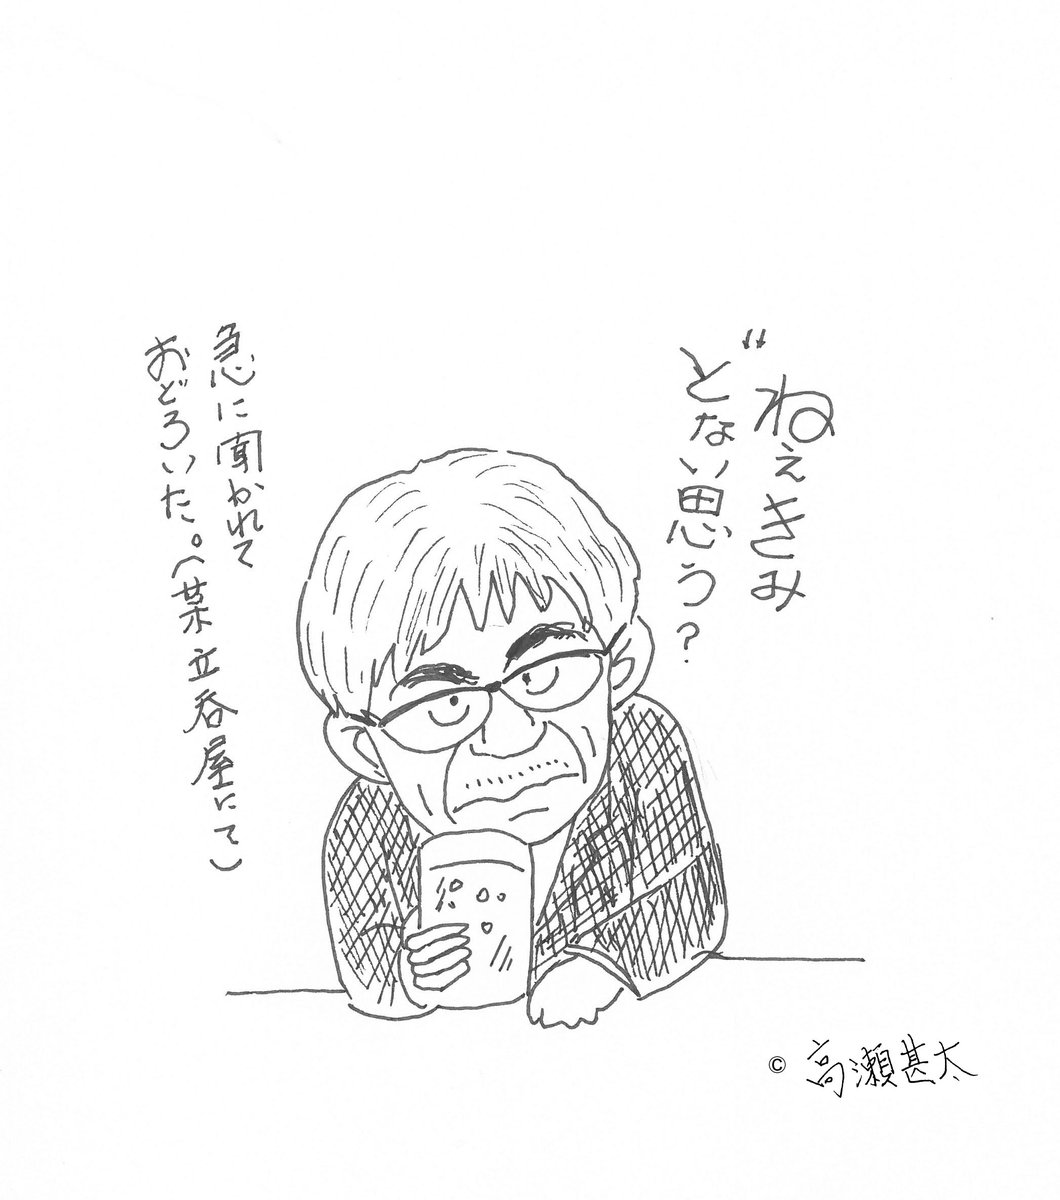 〝ねぇきみ
どない思う?
急に聞かれて
おどろいた。(某立呑屋にて)
© 高瀬甚太